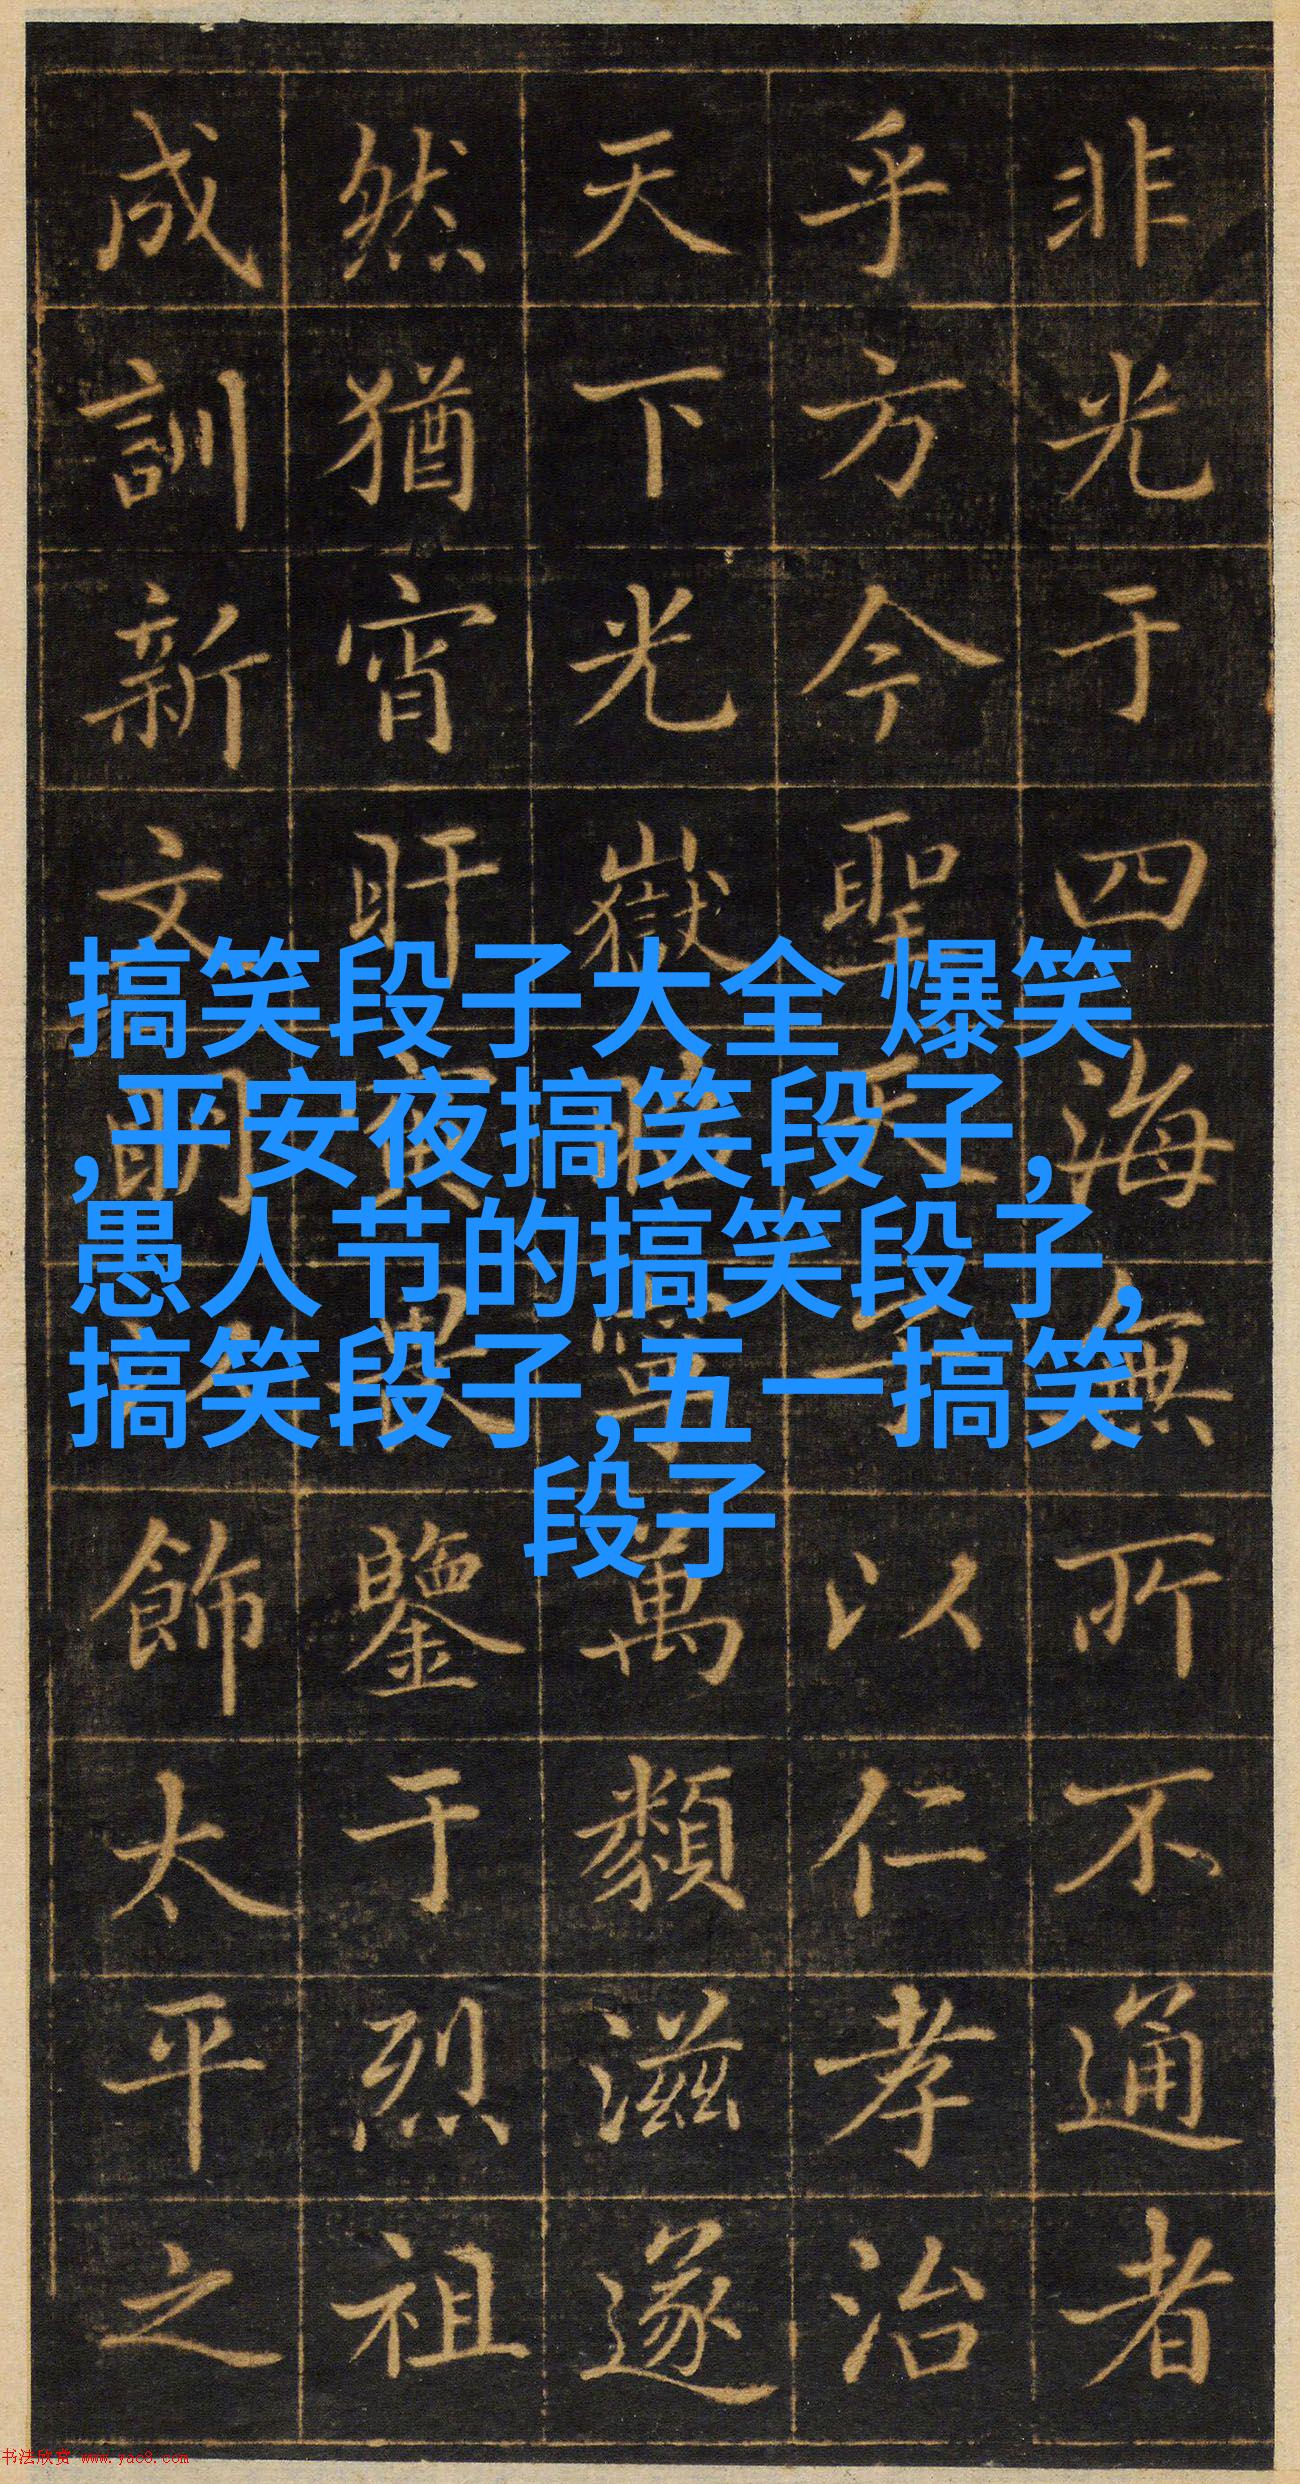 非光于四海無所不通者
乎方今聖天子以仁孝治
天下光嶽萬類滋遂
然猶宵旰寅畏鑒于烈祖
成訓新文明以飾太平之
搞笑段子大全 爆笑
,平安夜搞笑段子,
愚人节的搞笑段子,
搞笑段子,五一 搞笑
段子
书法欣赏 www.yac8.com